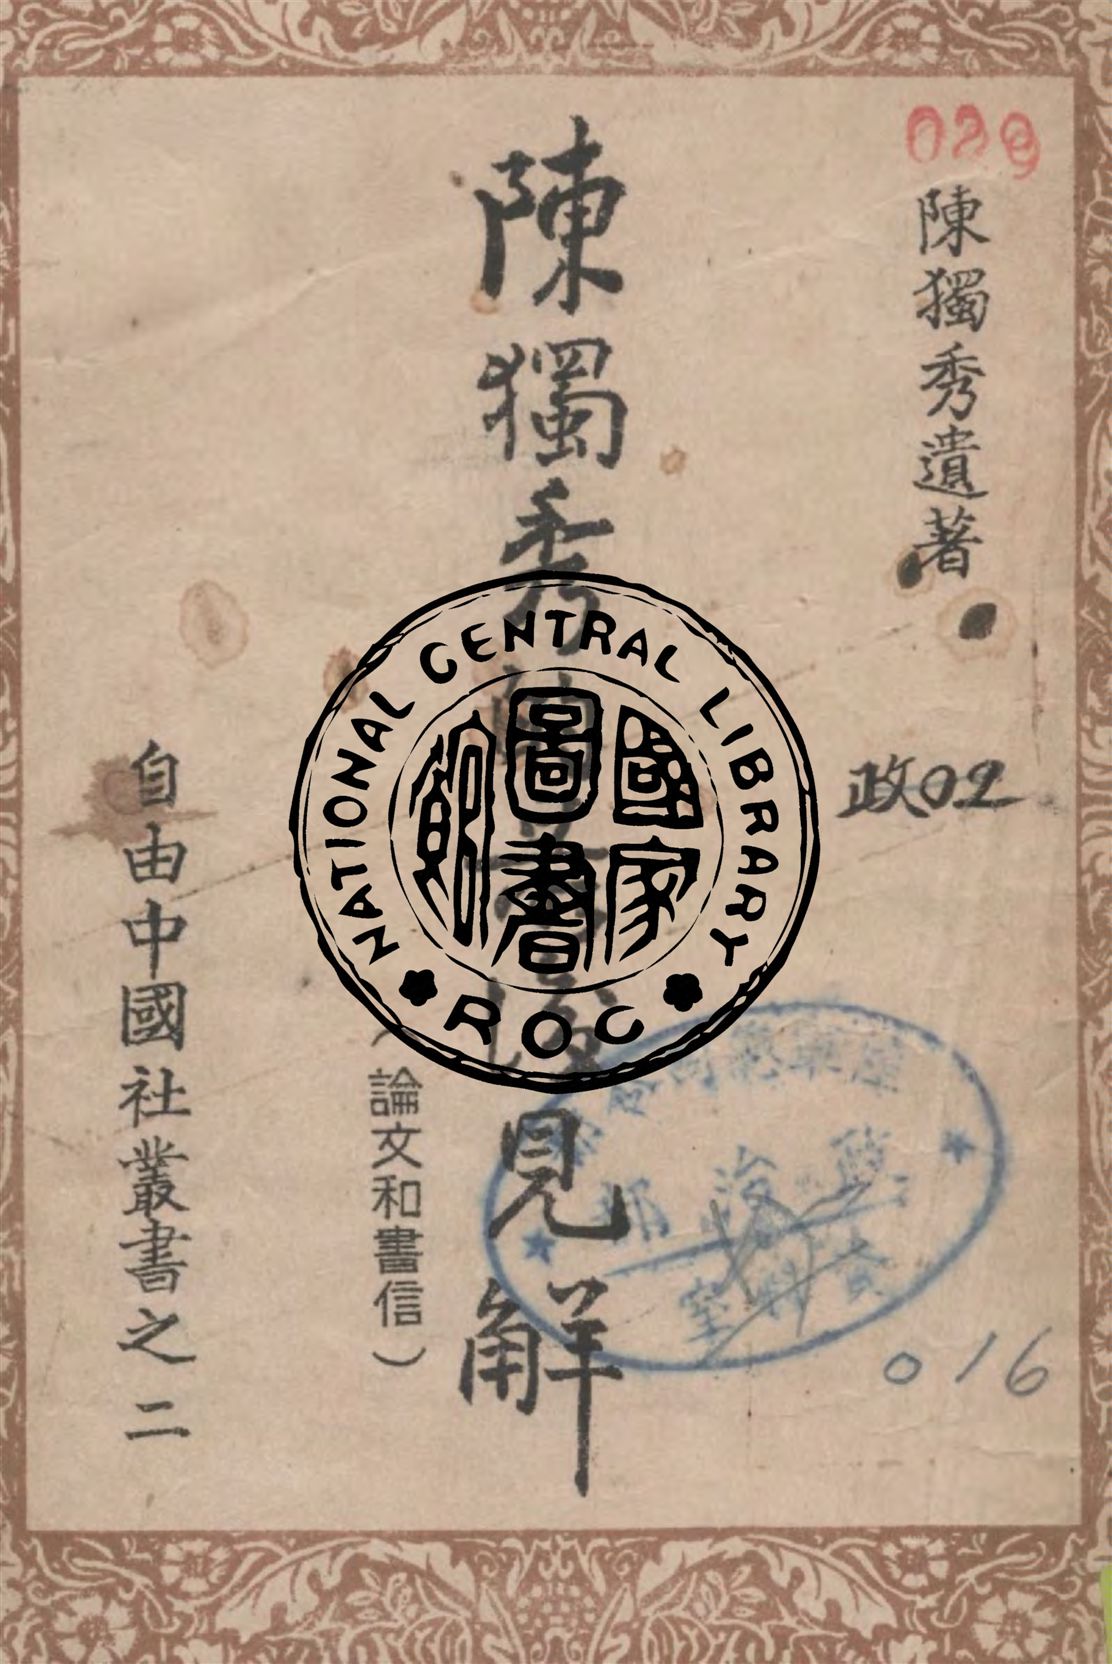 029
陳獨秀遺著
政02
陳獨秀最後見解
(論文和書信)
自由中國社叢書之二
NATIONAL CENTRAL LIBRARY
ROC
國家圖書館
政治部
資料室
016